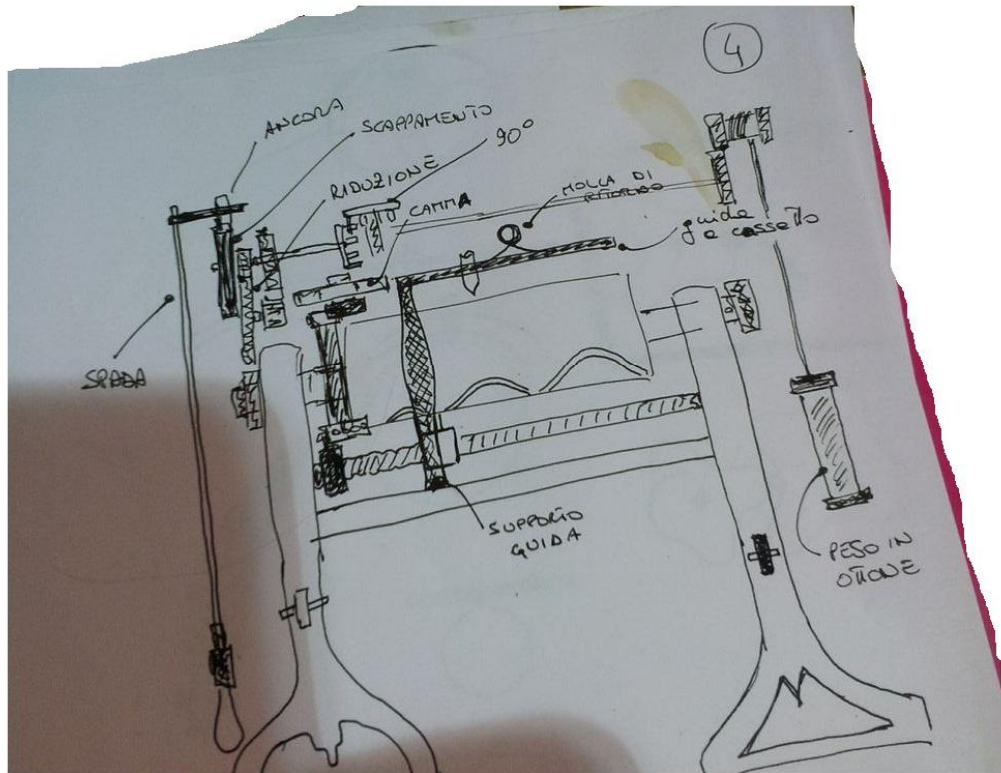 4
ANCORA
SCAPPAMENTO
90°
RIDUZIONE
CAMMA
MOLLA DI
RITORNO
guida
a cassetto
SPADA
SUPPORTO
GUIDA
PESO IN
OTTONE